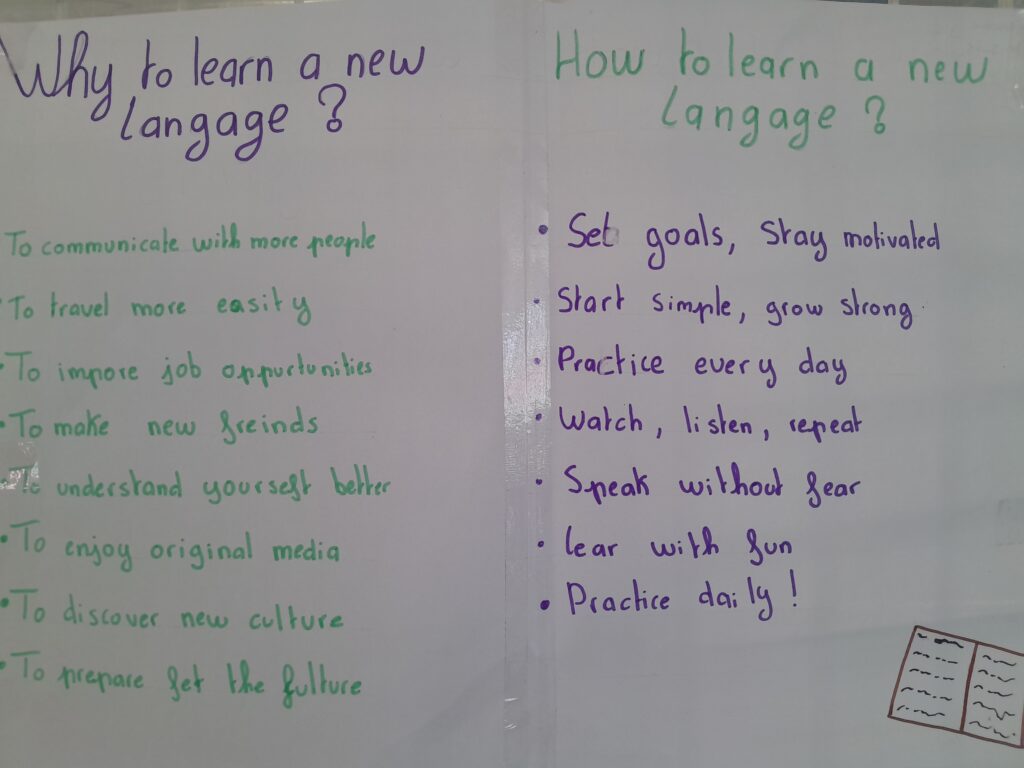 Why to learn a new
langage ?
To communicate with more people
To travel more easity
• To impore job oppurtunities
• To make new freinds
To understand yourseft better
• To enjoy original media
• To discover new culture
• To prepare fet the fulture
How to learn a new
langage ?
• Set goals, Stay motivated
• Start simple, grow strong
• Practice every day
• Watch, listen, repeat
• Speak without fear
• lear with fun
• Practice daily !